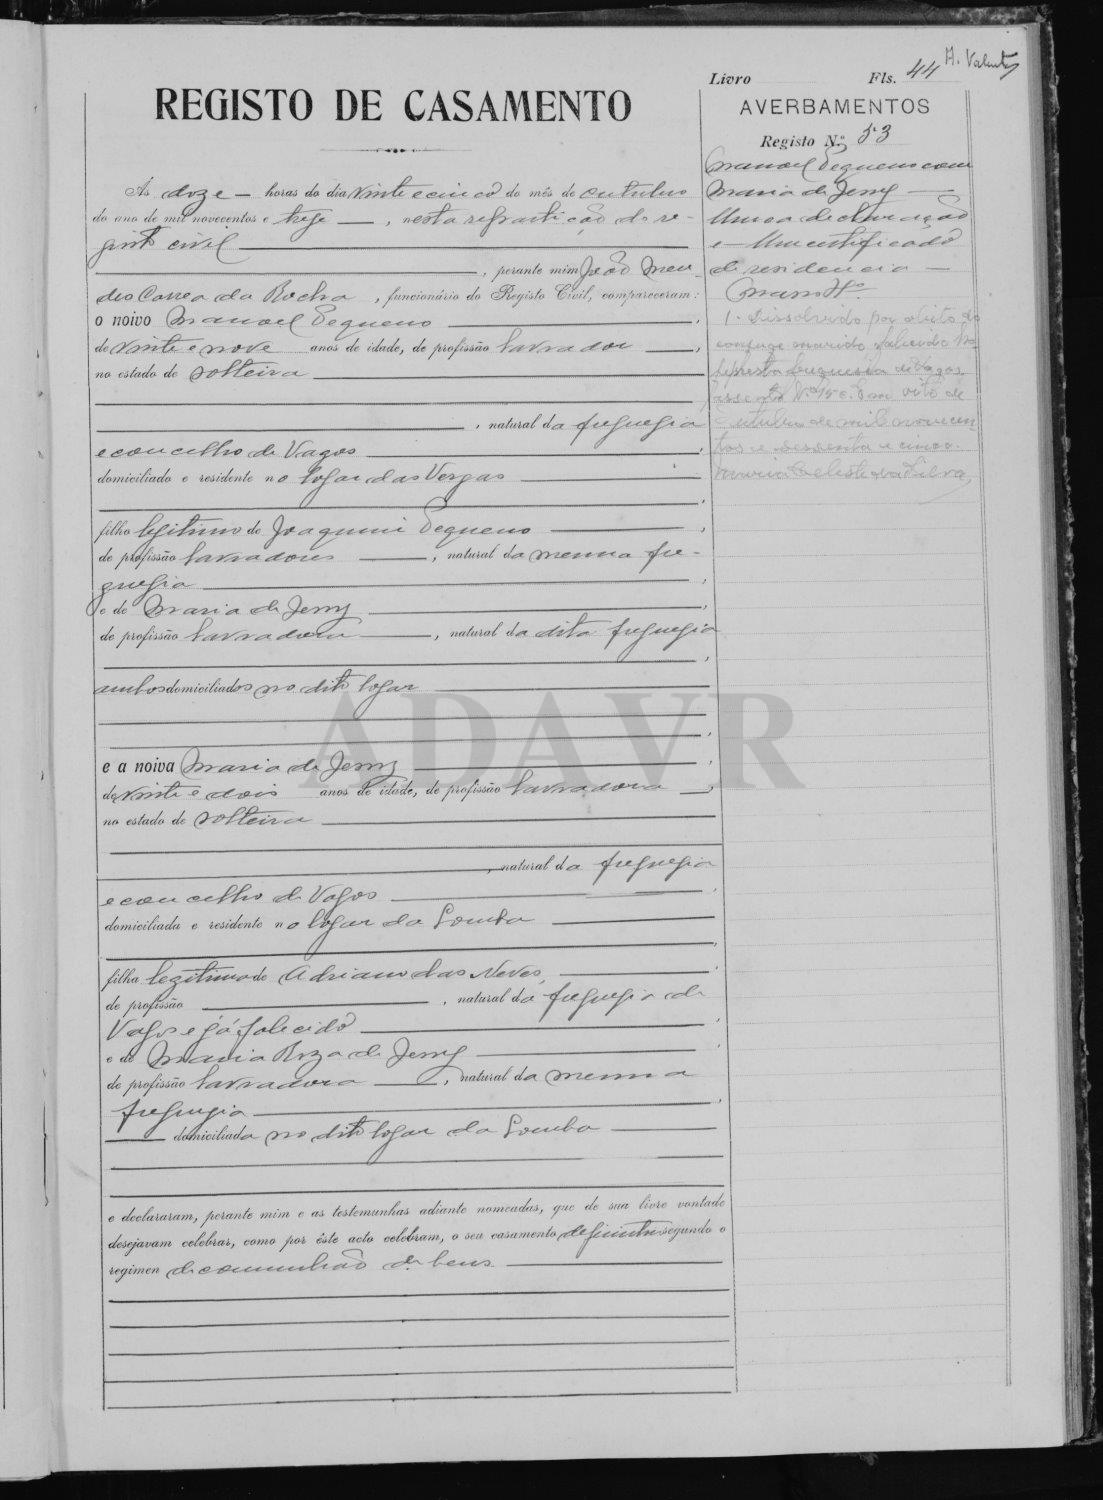 H. Valente
Livro Fls. 44
REGISTO DE CASAMENTO
AVERBAMENTOS
Registo N.º 53
Manoel Pequeno com
Maria de Jesus
Uma declaração
e Um certificado
de residencia
1. Dissolvido por obito do
conjuge marido falecido na
freguesia de Vagos.
Assento N.º Em oito de
Outubro de mil novecen-
tos e sessenta e cinco.
Maria Celeste da Silva
Ás doze — horas do dia vinte e cinco do mês de outubro
do ano de mil novecentos e treze —, nesta repartição do re-
gisto civil
, perante mim João Men-
des Correa da Rocha, funcionário do Registo Civil, compareceram:
o noivo Manoel Pequeno
de vinte e nove anos de idade, de profissão lavrador —,
no estado de solteiro
, natural da freguesia
e concelho de Vagos
domiciliado e residente no logar das Vergas
filho legitimo de Joaquim Pequeno
de profissão lavrador —, natural da mesma fre-
guesia
e de Maria de Jesus
de profissão lavradora —, natural da dita freguesia
ambos domiciliados no dito logar
ADAVR
e a noiva Maria de Jesus
de vinte e dois anos de idade, de profissão lavradora —,
no estado de solteira
, natural da freguesia
e concelho de Vagos
domiciliada e residente no logar da Lomba
filha legitima de Adriano das Neves
de profissão —, natural da freguesia de
Vagos e já falecido
e de Maria Roza de Jesus
de profissão lavradora —, natural da mesma
freguesia
domiciliada no dito logar da Lomba
e declararam, perante mim e as testemunhas adiante nomeadas, que de sua livre vontade
desejavam celebrar, como por êste acto celebram, o seu casamento definitivo segundo o
regimen de comunhão de bens